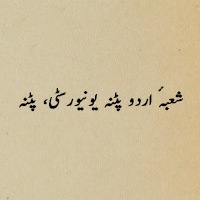 شعبۂ اردو پٹنہ یونیورسٹی، پٹنہ